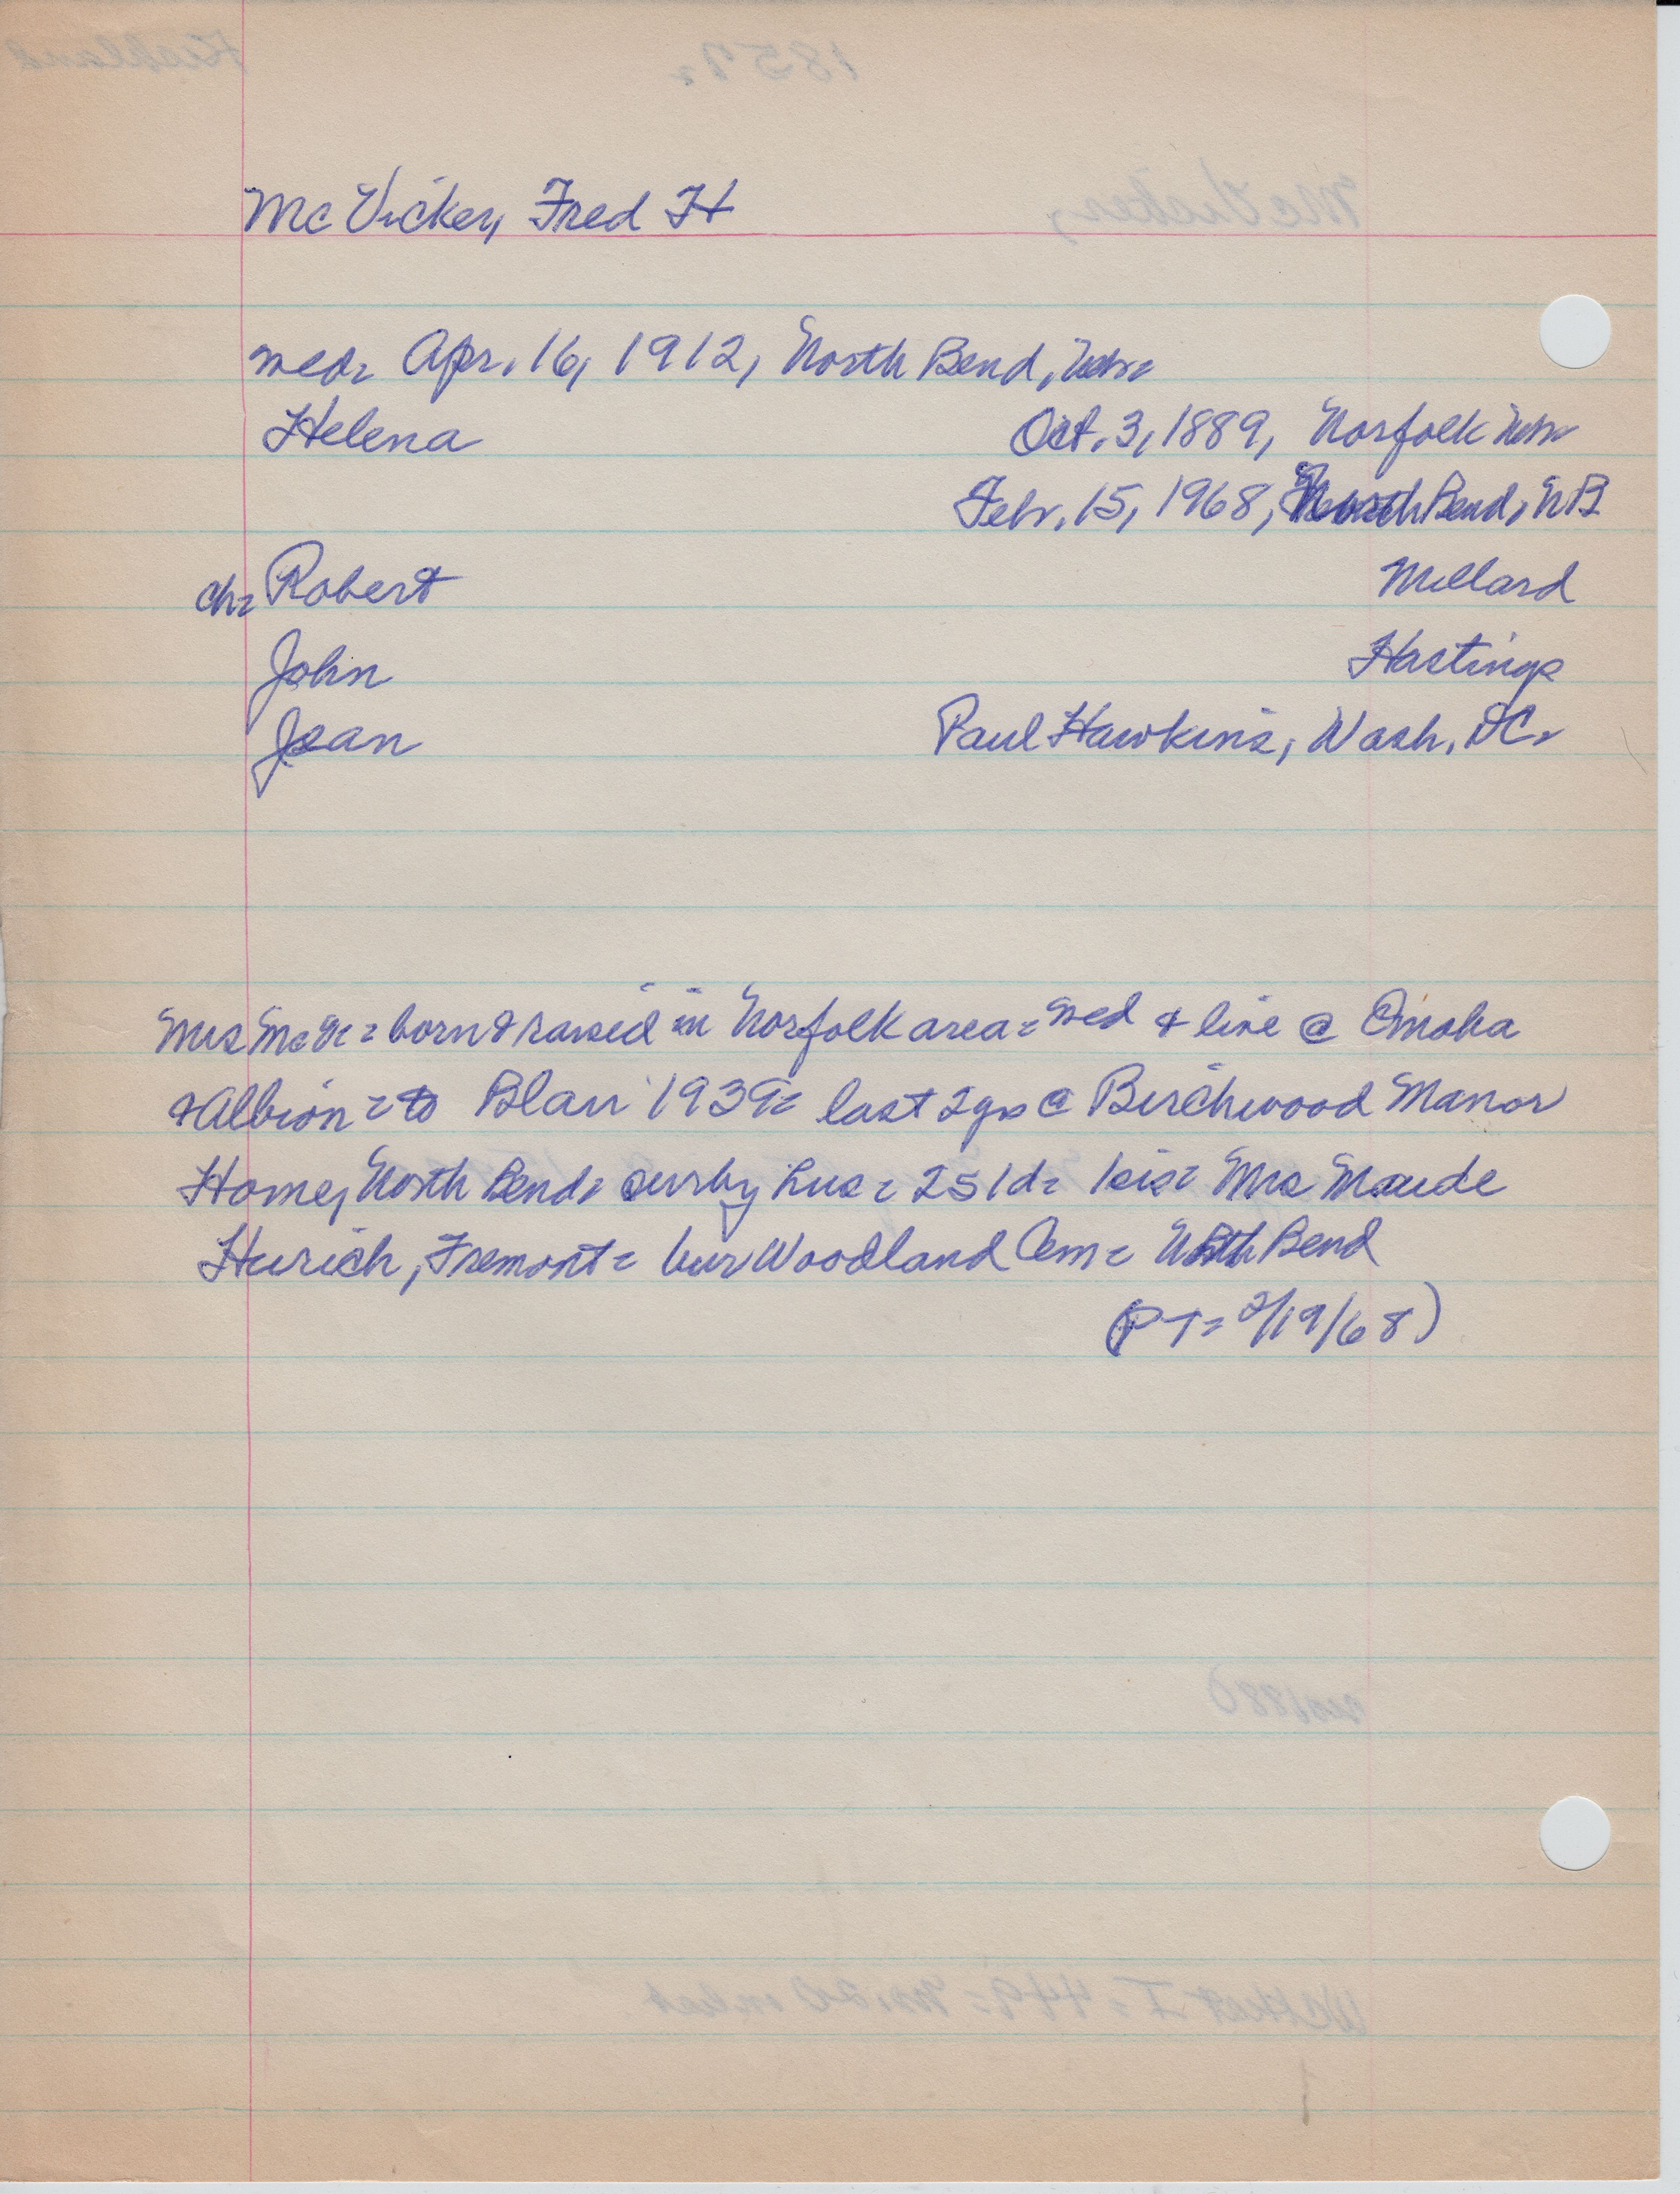 McVicker, Fred H
wed= Apr. 16, 1912, North Bend, Nebr=
Helena Oct. 3, 1889, Norfolk Nebr
Febr. 15, 1968, North Bend, NB
ch= Robert Millard
John Hastings
Jean Paul Hawkins, Wash, DC=
Mrs McV= born & raised in Norfolk area= wed & live @ Omaha
& Albion= to Blair 1939= last 2 yrs @ Birchwood Manor
Home, North Bend= surby hus= 2s 1d= 1sis= Mrs Maude
Hurich, Fremont= bur Woodland Cem= North Bend
(PT= 2/19/68)